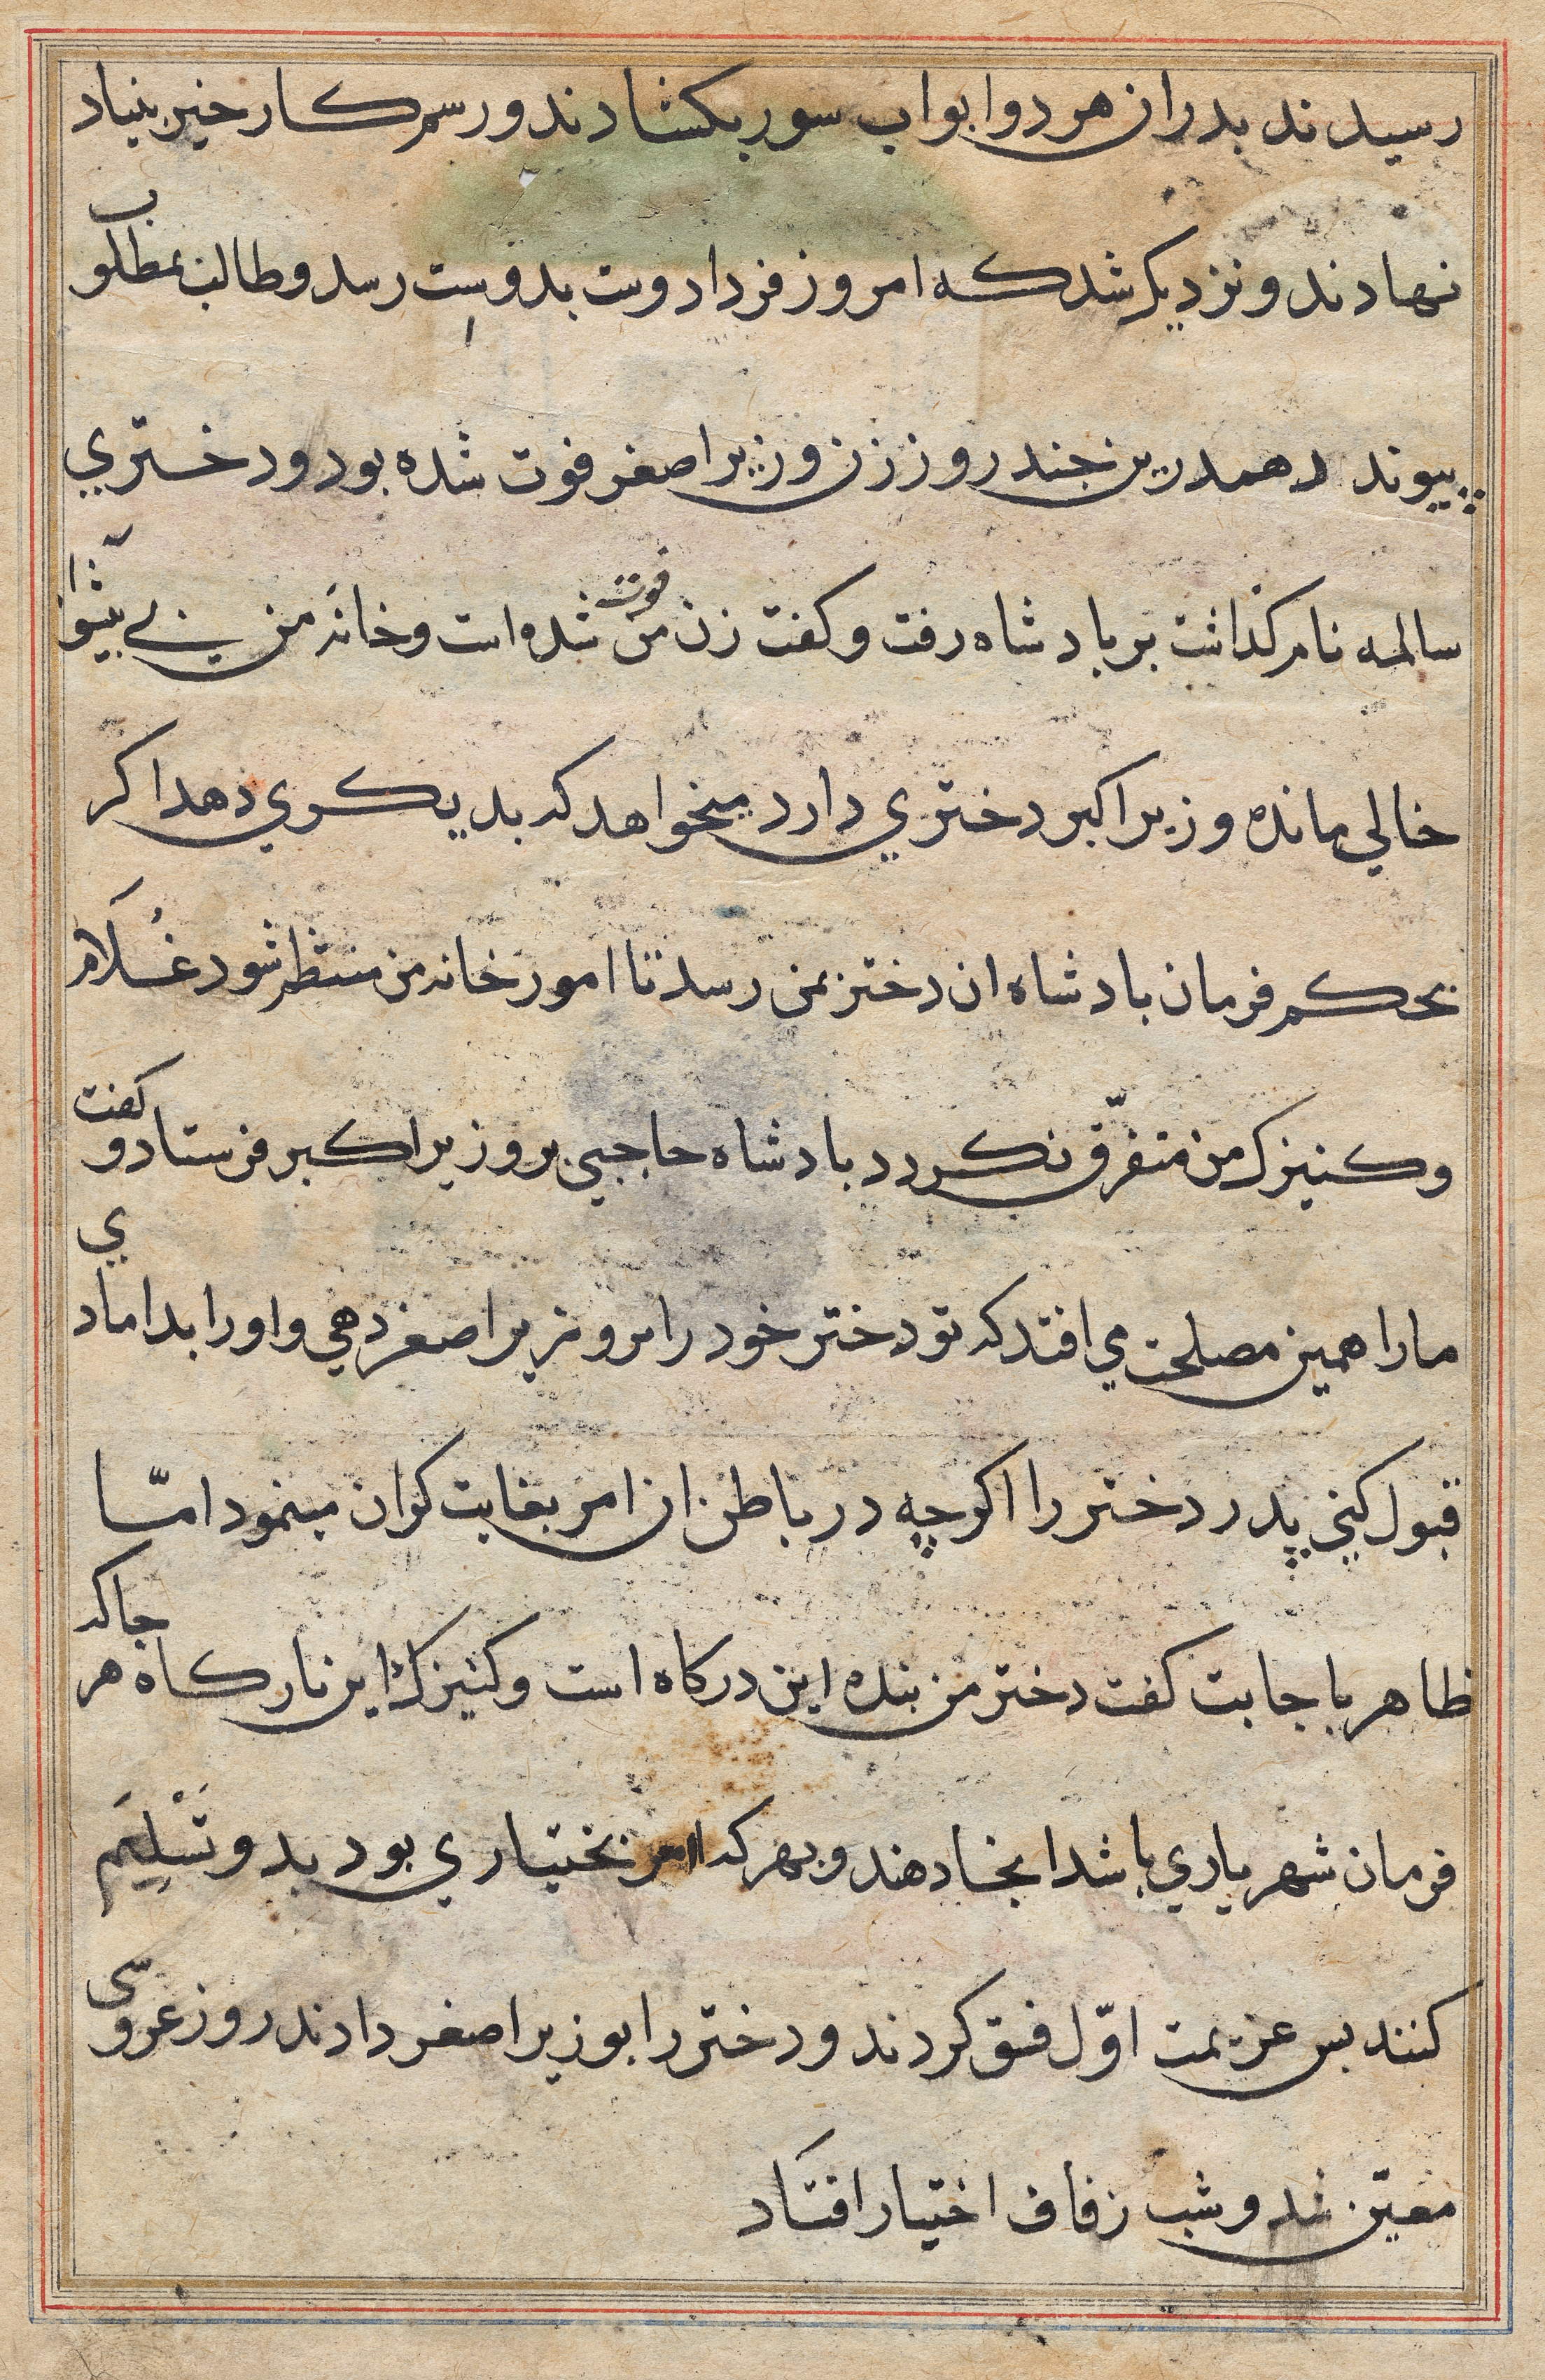 رسیدند بدران هر دو ابواب سور بکشادند و رسم کار خیر بنیاد
نهادند و نزدیک شد که امروز فردا دوست بدوست رسد و طالب بمطلوب
پیوند د همدرین جند روز زن وزیر اصغر فوت شده بود و دختری
سالمه نام کذاشت بر بادشاه رفت و کفت زن من فوت شده است و خانه من بی بیشوا
خالی مانده وزیر اکبر دختری دارد میخواهد که بدیکری دهد اکر
بحکم فرمان بادشاه ان دختر بمن رسد تا امور خانه من منتظم شود غُلَام
و کنیزک من متفرّق نکردد بادشاه حاجبی بر وزیر اکبر فرستاد و کفت
مارا همین مصلحت می افتد که تو دختر خود را بر وزیر اصغر دهی و اورا بدامادی
قبول کنی پدر دختر را اکرچه در باطن ان امر بغایت کران مینمود امّا
ظاهر باجابت کفت دختر من بنده این درکاه است و کنیزک این بارکاه هر جا که
فرمان شهریاری باشد انجا دهند و بهر که امر بختیاری بود بدو تَسْلِیَم
کنند بس عزیمت اوّل فسق کردند و دختر را بوزیر اصغر دادند روز عروسی
معیّن شد و شب زفاف اختیار افتَاد